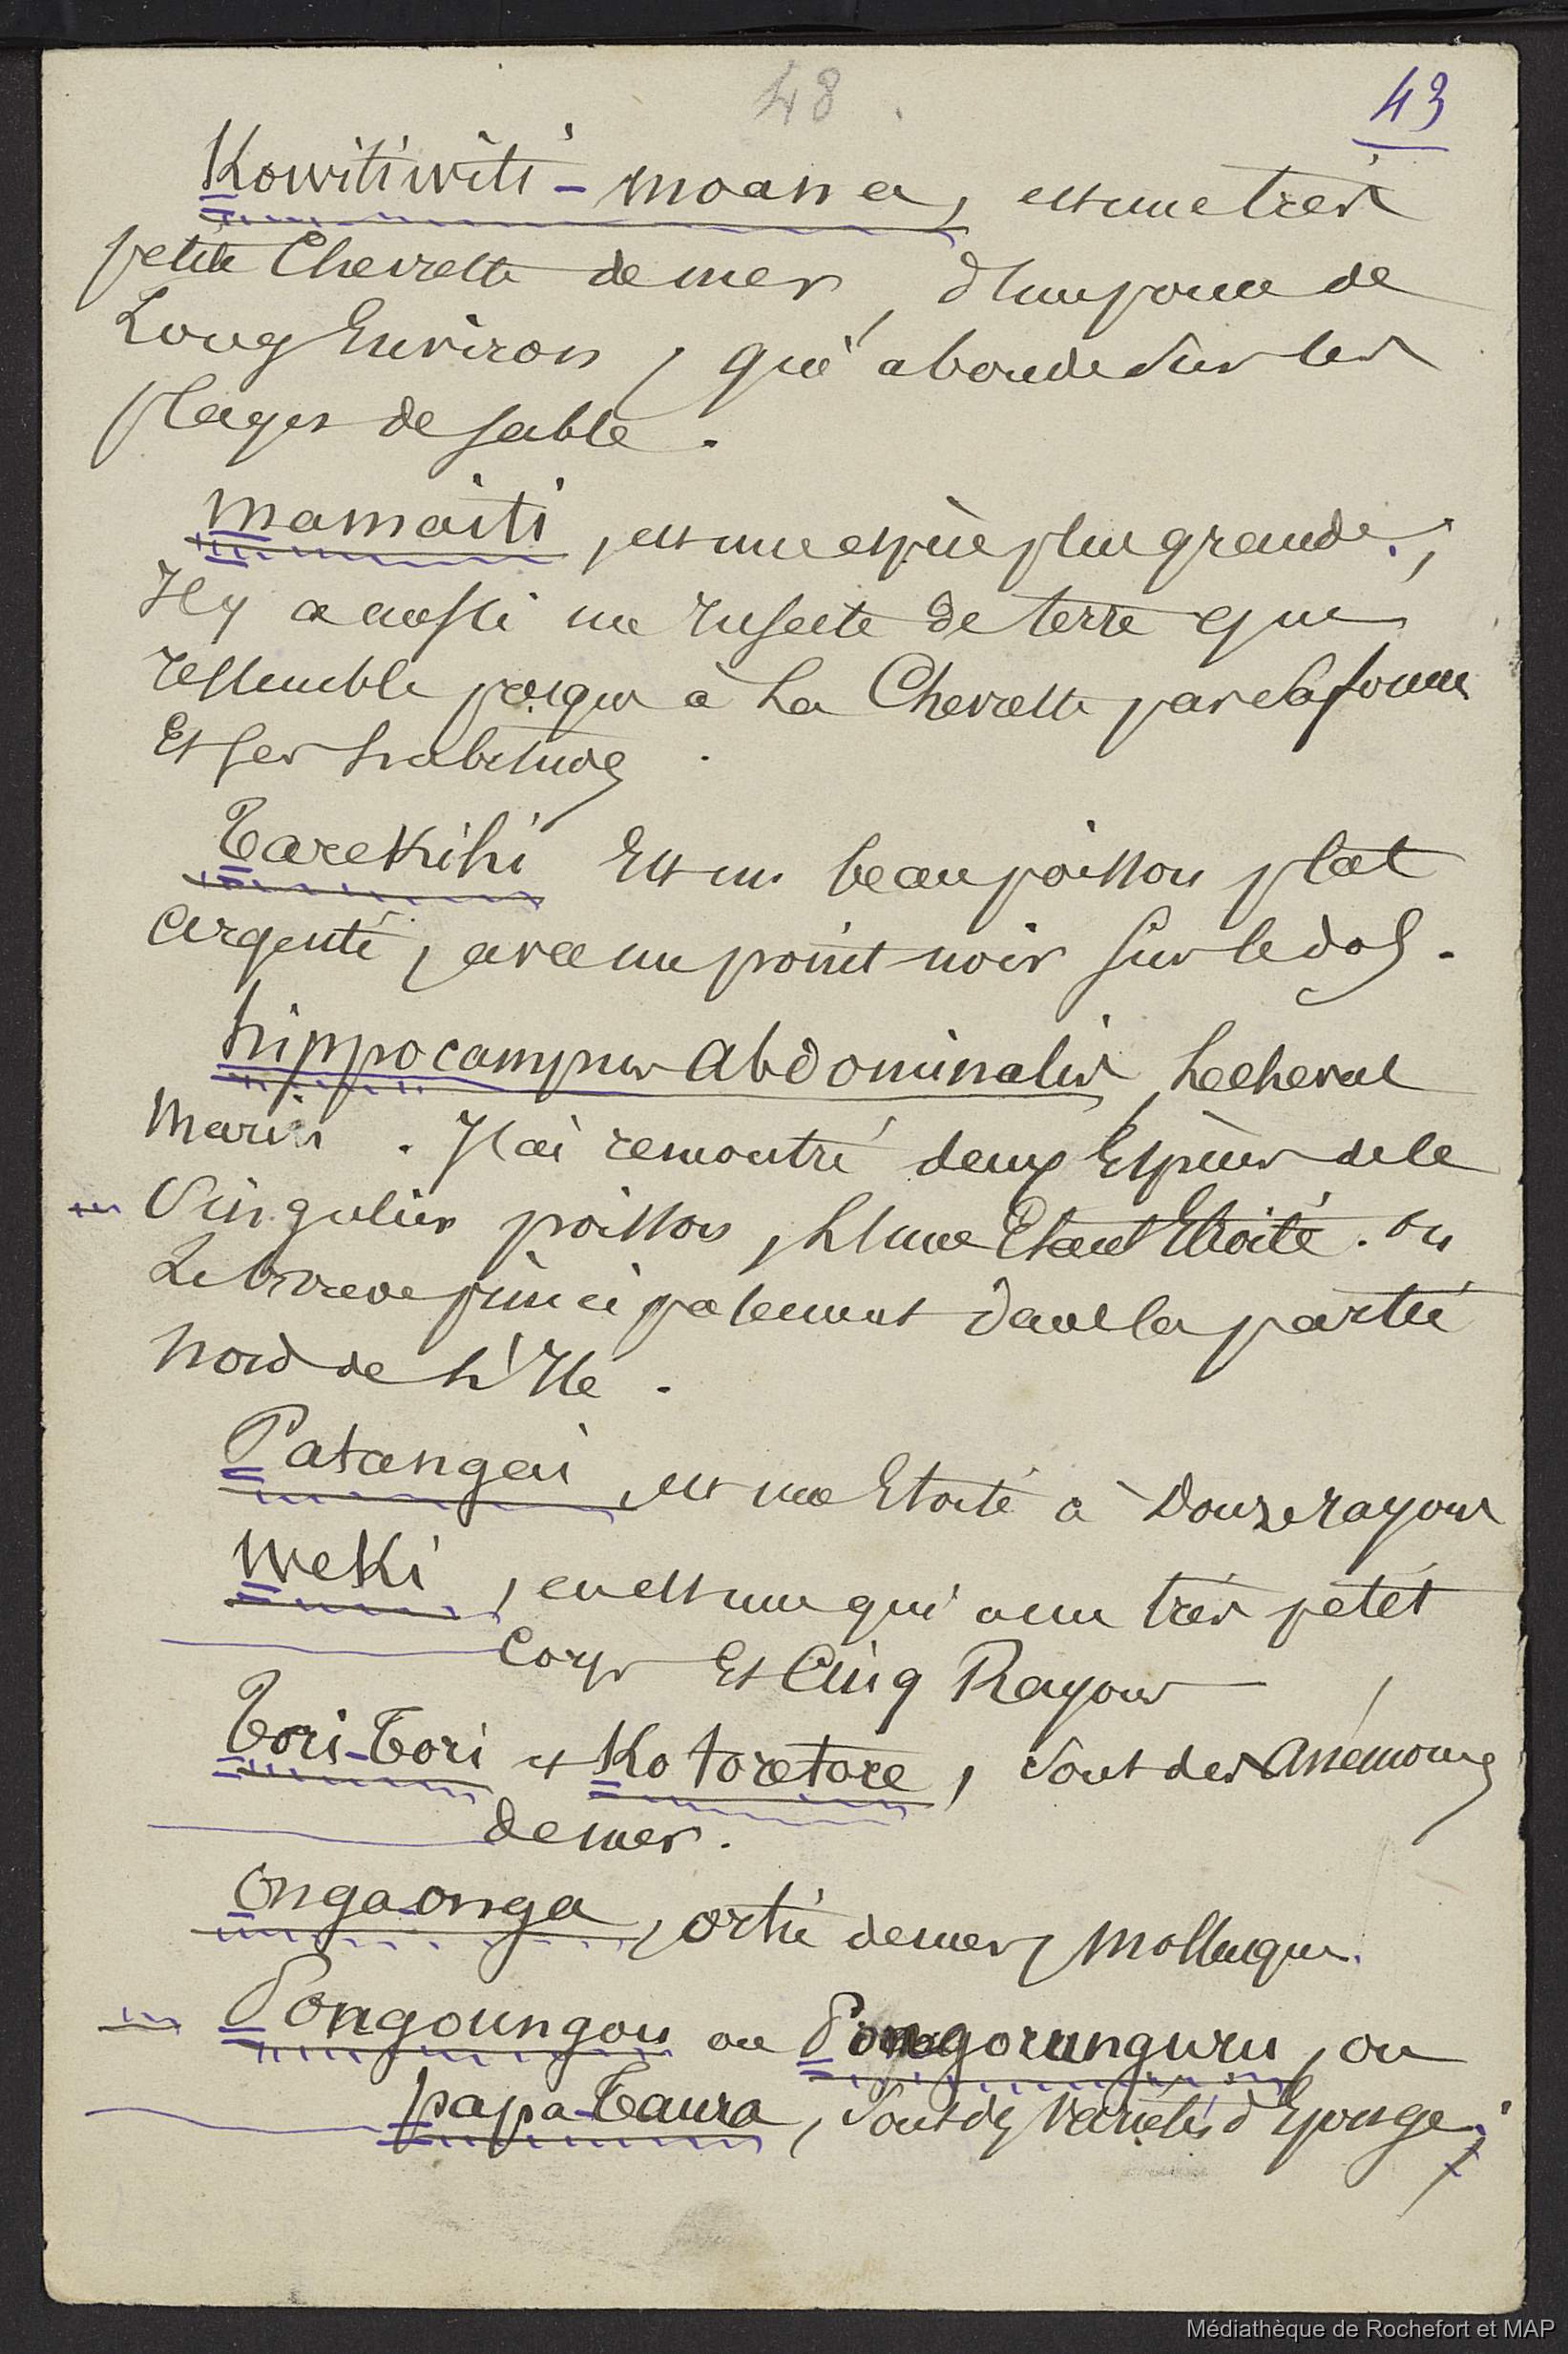 48
43
Kowitiwiti - moana, est une très
petite Chevrette de mer, d'un pouce de
Long Environ, qui abonde sur les
plages de sable.
mamaiti, est une espèce plus grande;
Il y a aussi un Insecte de terre que
ressemble presque à La Chevrette par la forme
Et ses habitudes.
Tarekihi Est un beau poisson plat
argenté, avec un point noir sur le dos.
hippocampus Abdominalis, Le cheval
Marin. J'ai rencontré deux Espèces de ce
Singulier poisson, L'une Etant Etoilé. on
Le trouve principalement dans la partie
Nord de L'Ile.
Patangai, est une Etoile à Douze rayons
Weki, en est une qui a un très petit
Corps Et Cinq Rayons
Tori-Tori et Ko toretore, sont des Anémones
de mer.
Onga-onga, ortie de mer, Mollusque.
Pongoungou ou Pongorunguru, ou
papa-Taura, sont des variétés d'Eponge;
Médiathèque de Rochefort et MAP